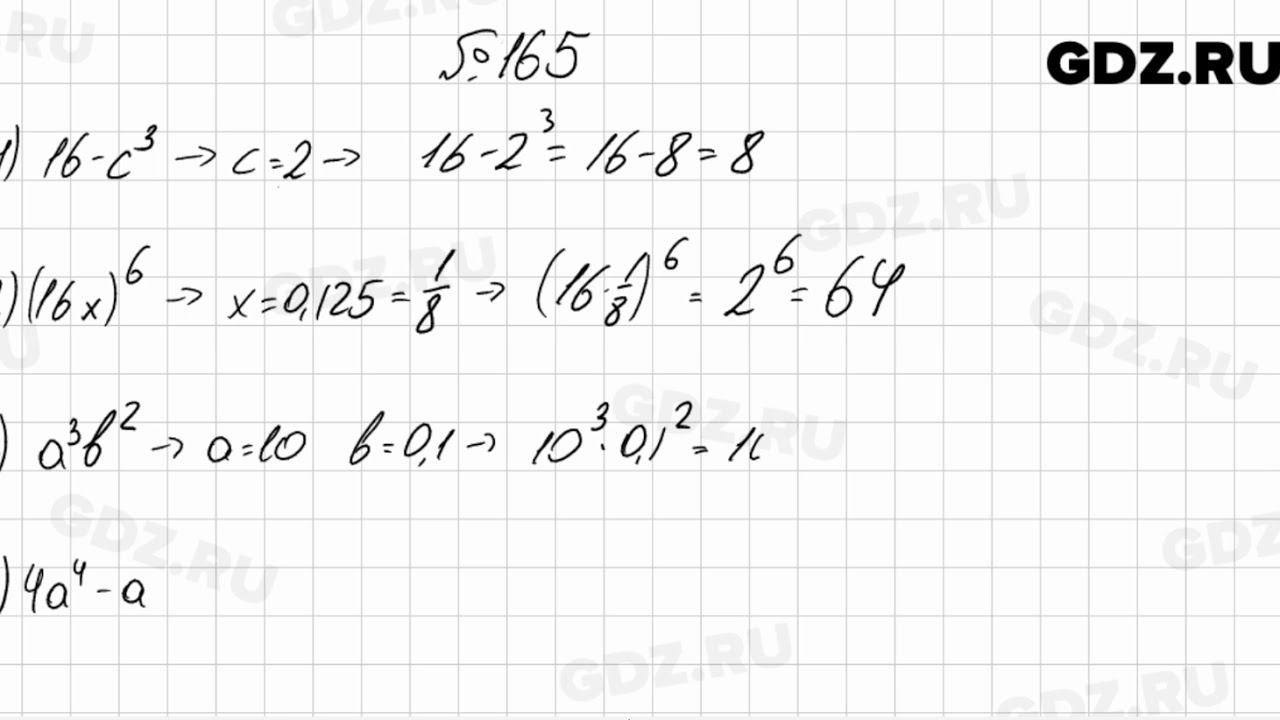 №165
GDZ.RU
1) 16 - c³ → c = 2 → 16 - 2³ = 16 - 8 = 8
) (16x)⁶ → x = 0,125 = 1/8 → (16 · 1/8)⁶ = 2⁶ = 64
) a³b² → a = 10 b = 0,1 → 10³ · 0,1² = 10
) 4a⁴ - a